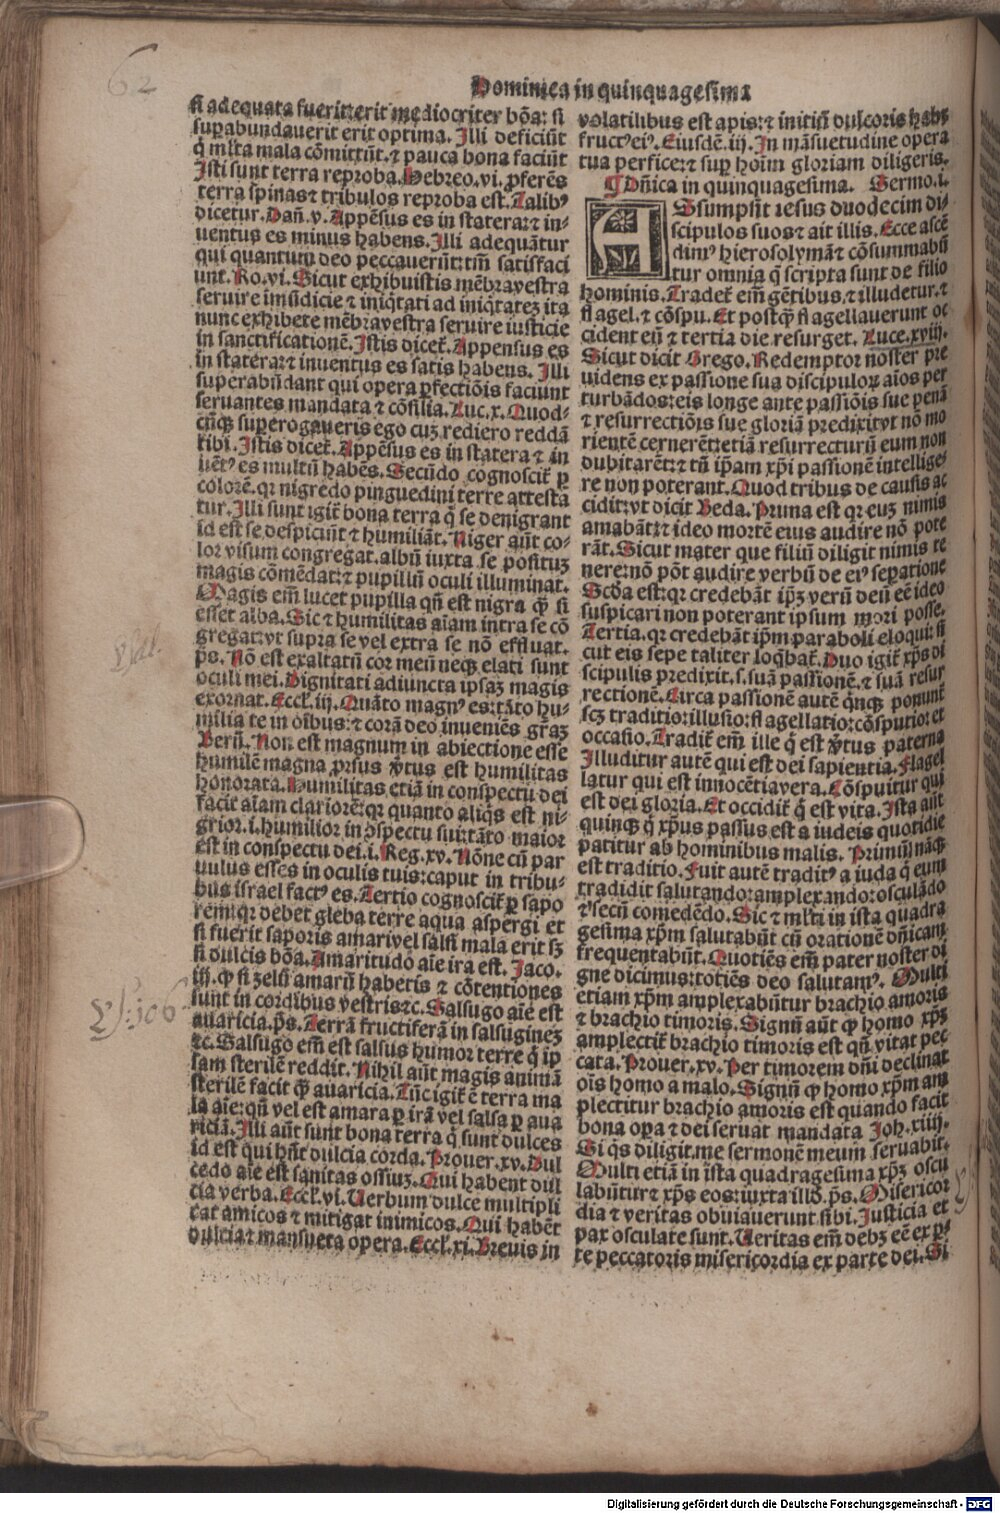 62
Dominica in quinquagesima
si adequata fuerit: erit mediocriter bōa: si
suꝑabundauerit erit optima. Illi deficiūt
q̇ ml̄ta mala cōmittūt. ⁊ pauca bona faciūt
Isti sunt terra reproba. Hebreo. vi. ꝓferēs
terra spinas ⁊ tribulos reproba est. Talibꝰ
dicetur. Dañ. v. Appēsus es in statera: ⁊ in-
uentus es minus habens. Illi adequātur
qui quantum deo peccauerūt: tm̄ satisfaci
unt. Ro. vi. Sicut exhibuistis mēbra vestra
seruire imūdicie ⁊ iniq̇tati ad iniq̇tateꝫ ita
nunc exhibete mēbra vestra seruire iusticie
in sanctificationē. Istis dicet᷑. Appensus es
in statera: ⁊ inuentus es satis habens. Illi
superabūdant qui opera ꝑfectiōis faciunt
seruantes mandata ⁊ cōsilia. Luc. x. Quod-
cūqꝫ suꝑerogaueris ego cuꝫ rediero reddā
tibi. Istis dicet᷑. Appēsus es in statera ⁊ in
uētꝰ es multū habēs. Secūdo cognoscit᷑ ꝑ
colorē. qꝛ nigredo pinguedini terre attesta
tur. Illi sunt igit᷑ bona terra q̇ se denigrant
id est se despiciūt ⁊ humiliāt. Niger aūt co-
lor visum congregat. albū iuxta se posituꝫ
magis cōmēdat: ⁊ pupillū oculi illuminat.
Magis em̄ lucet pupilla qn̄ est nigra q̄ꝫ si
esset alba. Sic ⁊ humilitas aīam intra se cō
gregat: vt supra se vel extra se nō effluat.
p̄s. Nō est exaltatū cor meū neqꝫ elati sunt
oculi mei. Dignitati adiuncta ipsaꝫ magis
exornat. Eccl̄. iij. Quāto magnꝰ es: tāto hu-
milia te in oībus: ⁊ corā deo inueniēs gr̄aꝫ
Berñ. Non est magnum in abiectione esse
humilē magna ꝓrsus v̇tus est humilitas
honorata. Humilitas etiā in conspectu dei
facit aīam clariorē: qꝛ quanto aliq̇s est ni-
grior. i. humilior in ɔspectu sui: tāto maior
est in conspectu dei. i. Reg. xv. Nōne cū par
uulus esses in oculis tuis: caput in tribu-
bus israel factꝰ es. Tertio cognoscit᷑ ꝑ sapo
rem: qꝛ debet gleba terre aqua aspergi et
si fuerit saporis amari vel salsi mala erit sꝫ
si dulcis bōa. Amaritudo aīe ira est. Jaco.
iij. ꝙ si zelū amarū habetis ⁊ cōtentiones
sunt in cordibus vestris ⁊c. Salsugo aīe est
auaricia. p̄s. Terrā fructiferā in salsugineꝫ
⁊c. Salsugo em̄ est salsus humor terre q̇ ip
sam sterilē reddit. Nihil aūt magis animā
sterilē facit q̄ꝫ auaricia. Tūc igit᷑ ē terra ma
la aīe: qn̄ vel est amara ꝑ irā vel salsa ꝑ aua
riciā. Illi aūt sunt bona terra q̇ sunt dulces
id est qui hn̄t dulcia corda. Prouer. xv. Dul
cedo aīe est sanitas ossiuꝫ. Qui habent dul
cia verba. Eccl̄. vi. Uerbum dulce multipli
cat amicos ⁊ mitigat inimicos. Qui habēt
dulcia ⁊ mansueta opera. Eccl̄. xi. Breuis in
volatilibus est apis: ⁊ initiū dulcoris habꝫ
fructꝰ eiꝰ. Eiusdē. iij. In māsuetudine opera
tua perfice: ⁊ suꝑ hoīm gloriam diligeris.
¶ Dn̄ica in quinquagesima. Sermo. i.
ASsumpsit iesus duodecim di-
scipulos suos ⁊ ait illis. Ecce ascē
dimꝰ hierosolymā ⁊ cōsummabū
tur omnia q̄ scripta sunt de filio
hominis. Tradet᷑ em̄ gētibus. ⁊ illudetur. ⁊
flagel. ⁊ cōspu. Et postq̄ꝫ flagellauerunt oc
cident eū ⁊ tertia die resurget. Luce. xviij.
Sicut dicit Grego. Redemptor noster pre
uidens ex passione sua discipuloꝝ aīos per
turbādos: eis longe ante passiōis sue penā
⁊ resurrectiōis sue gloriā predixit: vt nō mo
rientē cernerēt: etiā resurrecturū eum non
dubitarēt: ⁊ tn̄ ip̄am xp̄i passionē intellige-
re non poterant. Quod tribus de causis ac
cidit: vt dicit Beda. Pruna est qꝛ euꝫ nimis
amabāt: ⁊ ideo mortē eius audire nō pote
rāt. Sicut mater que filiū diligit nimis te
nere: nō pōt audire verbū de eiꝰ seꝑatione
Scd̄a est: qꝛ credebāt ip̄ꝫ verū deū eē ideo
suspicari non poterant ipsum mori posse.
Tertia. qꝛ credebāt ip̄m paraboli eloqui: si
cut eis sepe taliter loq̄bat᷑. Duo igit᷑ xp̄s di
scipulis predixit. s. suā passionē. ⁊ suā resur
rectionē. Circa passionē autē q̇nqꝫ ponunt᷑
scꝫ traditio: illusio: flagellatio: cōsputio: et
occasio. Tradit᷑ em̄ ille q̇ est v̇tus paterna
Illuditur autē qui est dei sapientia. Flagel
latur qui est innocētia vera. Cōspuitur qui
est dei gloria. Et occidit᷑ q̇ est vita. Ista aūt
quinqꝫ q̄ xp̄us passus est a iudeis quotidie
patitur ab hominibus malis. Primū nāqꝫ
est traditio. Fuit autē traditꝰ a iuda q̇ eum
tradidit salutando: amplexando: osculādo
⁊ secū comedēdo. Sic ⁊ ml̄ti in ista quadra
gesima xp̄m salutabūt cū orationē dn̄icam
frequentabūt. Quotiēs em̄ pater noster di
gne dicimus: totiēs deo salutamꝰ. Multi
etiam xp̄m amplexabūtur brachio amoris
⁊ brachio timoris. Signū aūt ꝙ homo xp̄ꝫ
amplectit᷑ brachio timoris est qn̄ vitat pec
cata. Prouer. xv. Per timorem dn̄i declinat
oīs homo a malo. Signū ꝙ homo xp̄m am
plectitur brachio amoris est quando facit
bona oꝑa ⁊ dei seruat mandata Joh. xiiij.
Si q̇s diligit me sermonē meum seruabit.
Multi etiā in ista quadragesima xp̄ꝫ oscu
labūtur ⁊ xp̄s eos: iuxta illd̄. p̄s. Misericor
dia ⁊ veritas obuiauerunt sibi. Justicia et
pax osculate sunt. Ueritas em̄ debꝫ eē ex ꝑ-
te peccatoris misericordia ex parte dei. Si
Digitalisierung gefördert durch die Deutsche Forschungsgemeinschaft - DFG